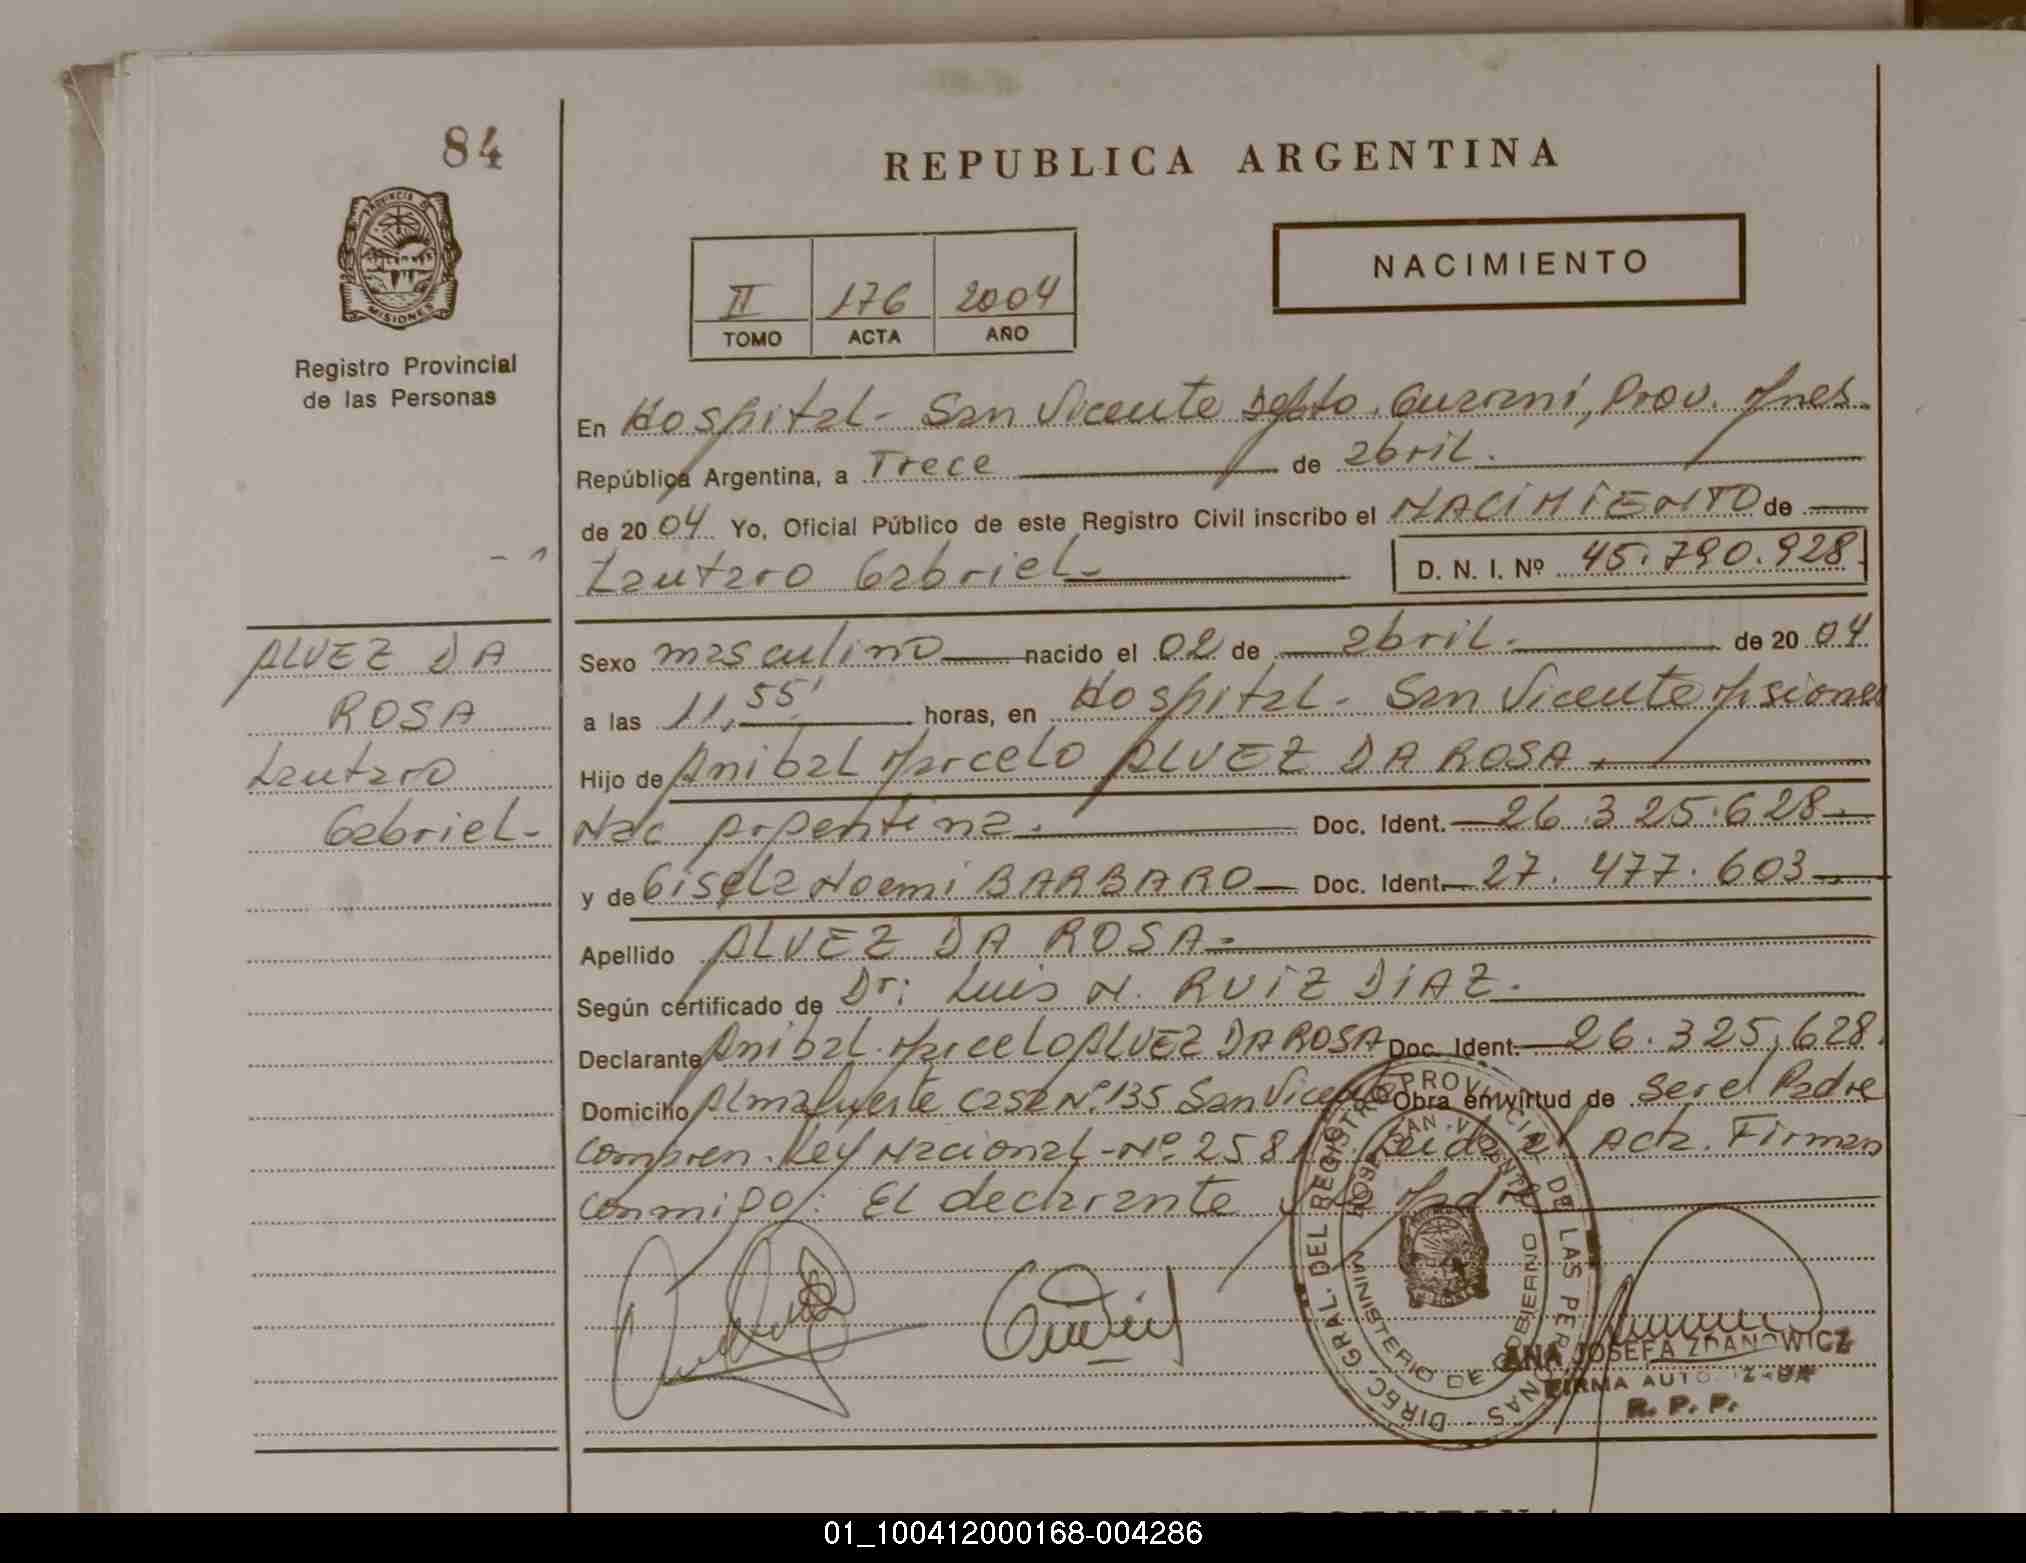 84
REPUBLICA ARGENTINA
PROVINCIA DE
MISIONES
NACIMIENTO
II 176 2004
TOMO ACTA AÑO
Registro Provincial
de las Personas
En Hospital - San Vicente Dpto. Guarani, Prov. Mnes.
República Argentina, a Trece de abril.
de 2004 Yo, Oficial Público de este Registro Civil inscribo el NACIMIENTO de
Lautaro Gabriel - D. N. I. Nº 45.790.928
ALVEZ DA
ROSA
Lautaro
Gabriel -
Sexo masculino nacido el 02 de abril. de 2004
a las 11,55' horas, en Hospital - San Vicente Misiones
Hijo de Anibal Marcelo ALVEZ DA ROSA.
Nac Argentina. Doc. Ident. 26.325.628
y de Gisela Noemi BARBARO Doc. Ident. 27.477.603
Apellido ALVEZ DA ROSA -
Según certificado de Dr: Luis N. RUIZ DIAZ.
Declarante Anibal Marcelo ALVEZ DA ROSA Doc. Ident. 26.325,628.
Domicilio Almafuerte casa Nº 135 San Vicente Obra en virtud de ser el Padre
Ley Nacional - Nº 258 Leida el Acta. Firman
conmigo: El declarante y la Madre
DIREC. GRAL. DEL REGISTRO PROVINCIAL DE LAS PERSONAS
HOSP. SAN VICENTE
MINISTERIO DE GOBIERNO
ANA JOSEFA ZDANOWICZ
FIRMA AUTORIZADA
R. P. P.
01_100412000168-004286